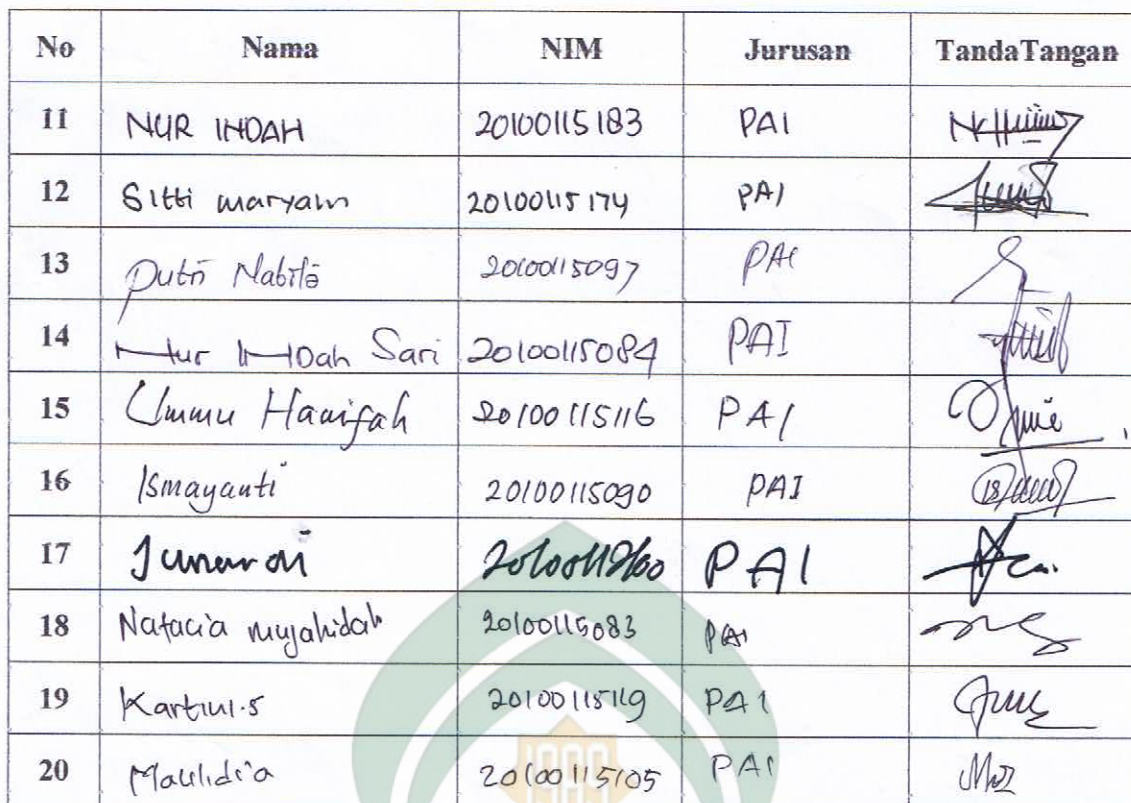 No Nama NIM Jurusan TandaTangan
11 NUR INDAH 20100115183 PAI
12 Sitti maryam 20100115174 PAI
13 Putri Nabila 20100115097 PAI
14 Nur INDah Sari 20100115084 PAI
15 Ummu Hanifah 20100115116 PAI
16 Ismayanti 20100115090 PAI
17 Junardi PAI
18 Natacia mujahidah 20100115083 PAI
19 Kartini.S 20100115119 PAI
20 Maulidia 20100115105 PAI